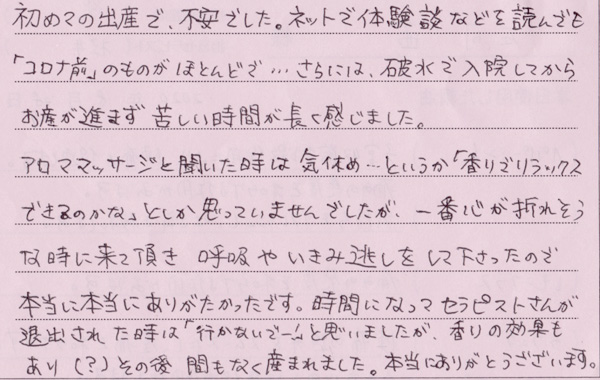 初めての出産で、不安でした。ネットで体験談などを読んでも
「コロナ前」のものがほとんどで…さらには、破水で入院してから
お産が進まず苦しい時間が長く感じました。
アロママッサージと聞いた時は気休め…というか「香りでリラックス
できるのかな」としか思っていませんでしたが、一番心が折れそう
な時に来て頂き 呼吸やいきみ逃しをして下さったので
本当に本当にありがたかったです。時間になってセラピストさんが
退出された時は「行かないでー!」と思いましたが、香りの効果も
あり(?)その後 間もなく産まれました。本当にありがとうございます。